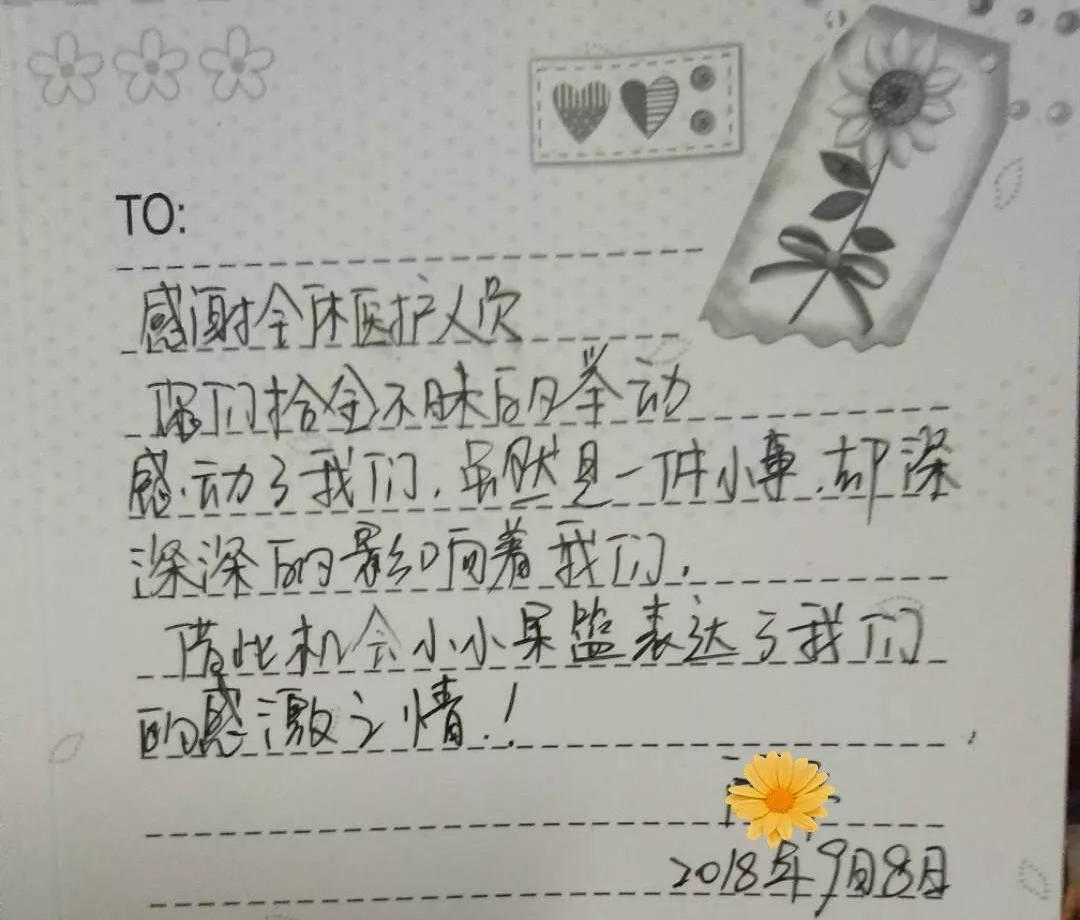 TO:
感谢全体医护人员
你们拾金不昧的举动
感动了我们,虽然是一件小事,却深
深深的影响着我们,
借此机会小小果篮表达了我们
的感激之情!
2018年9月8日